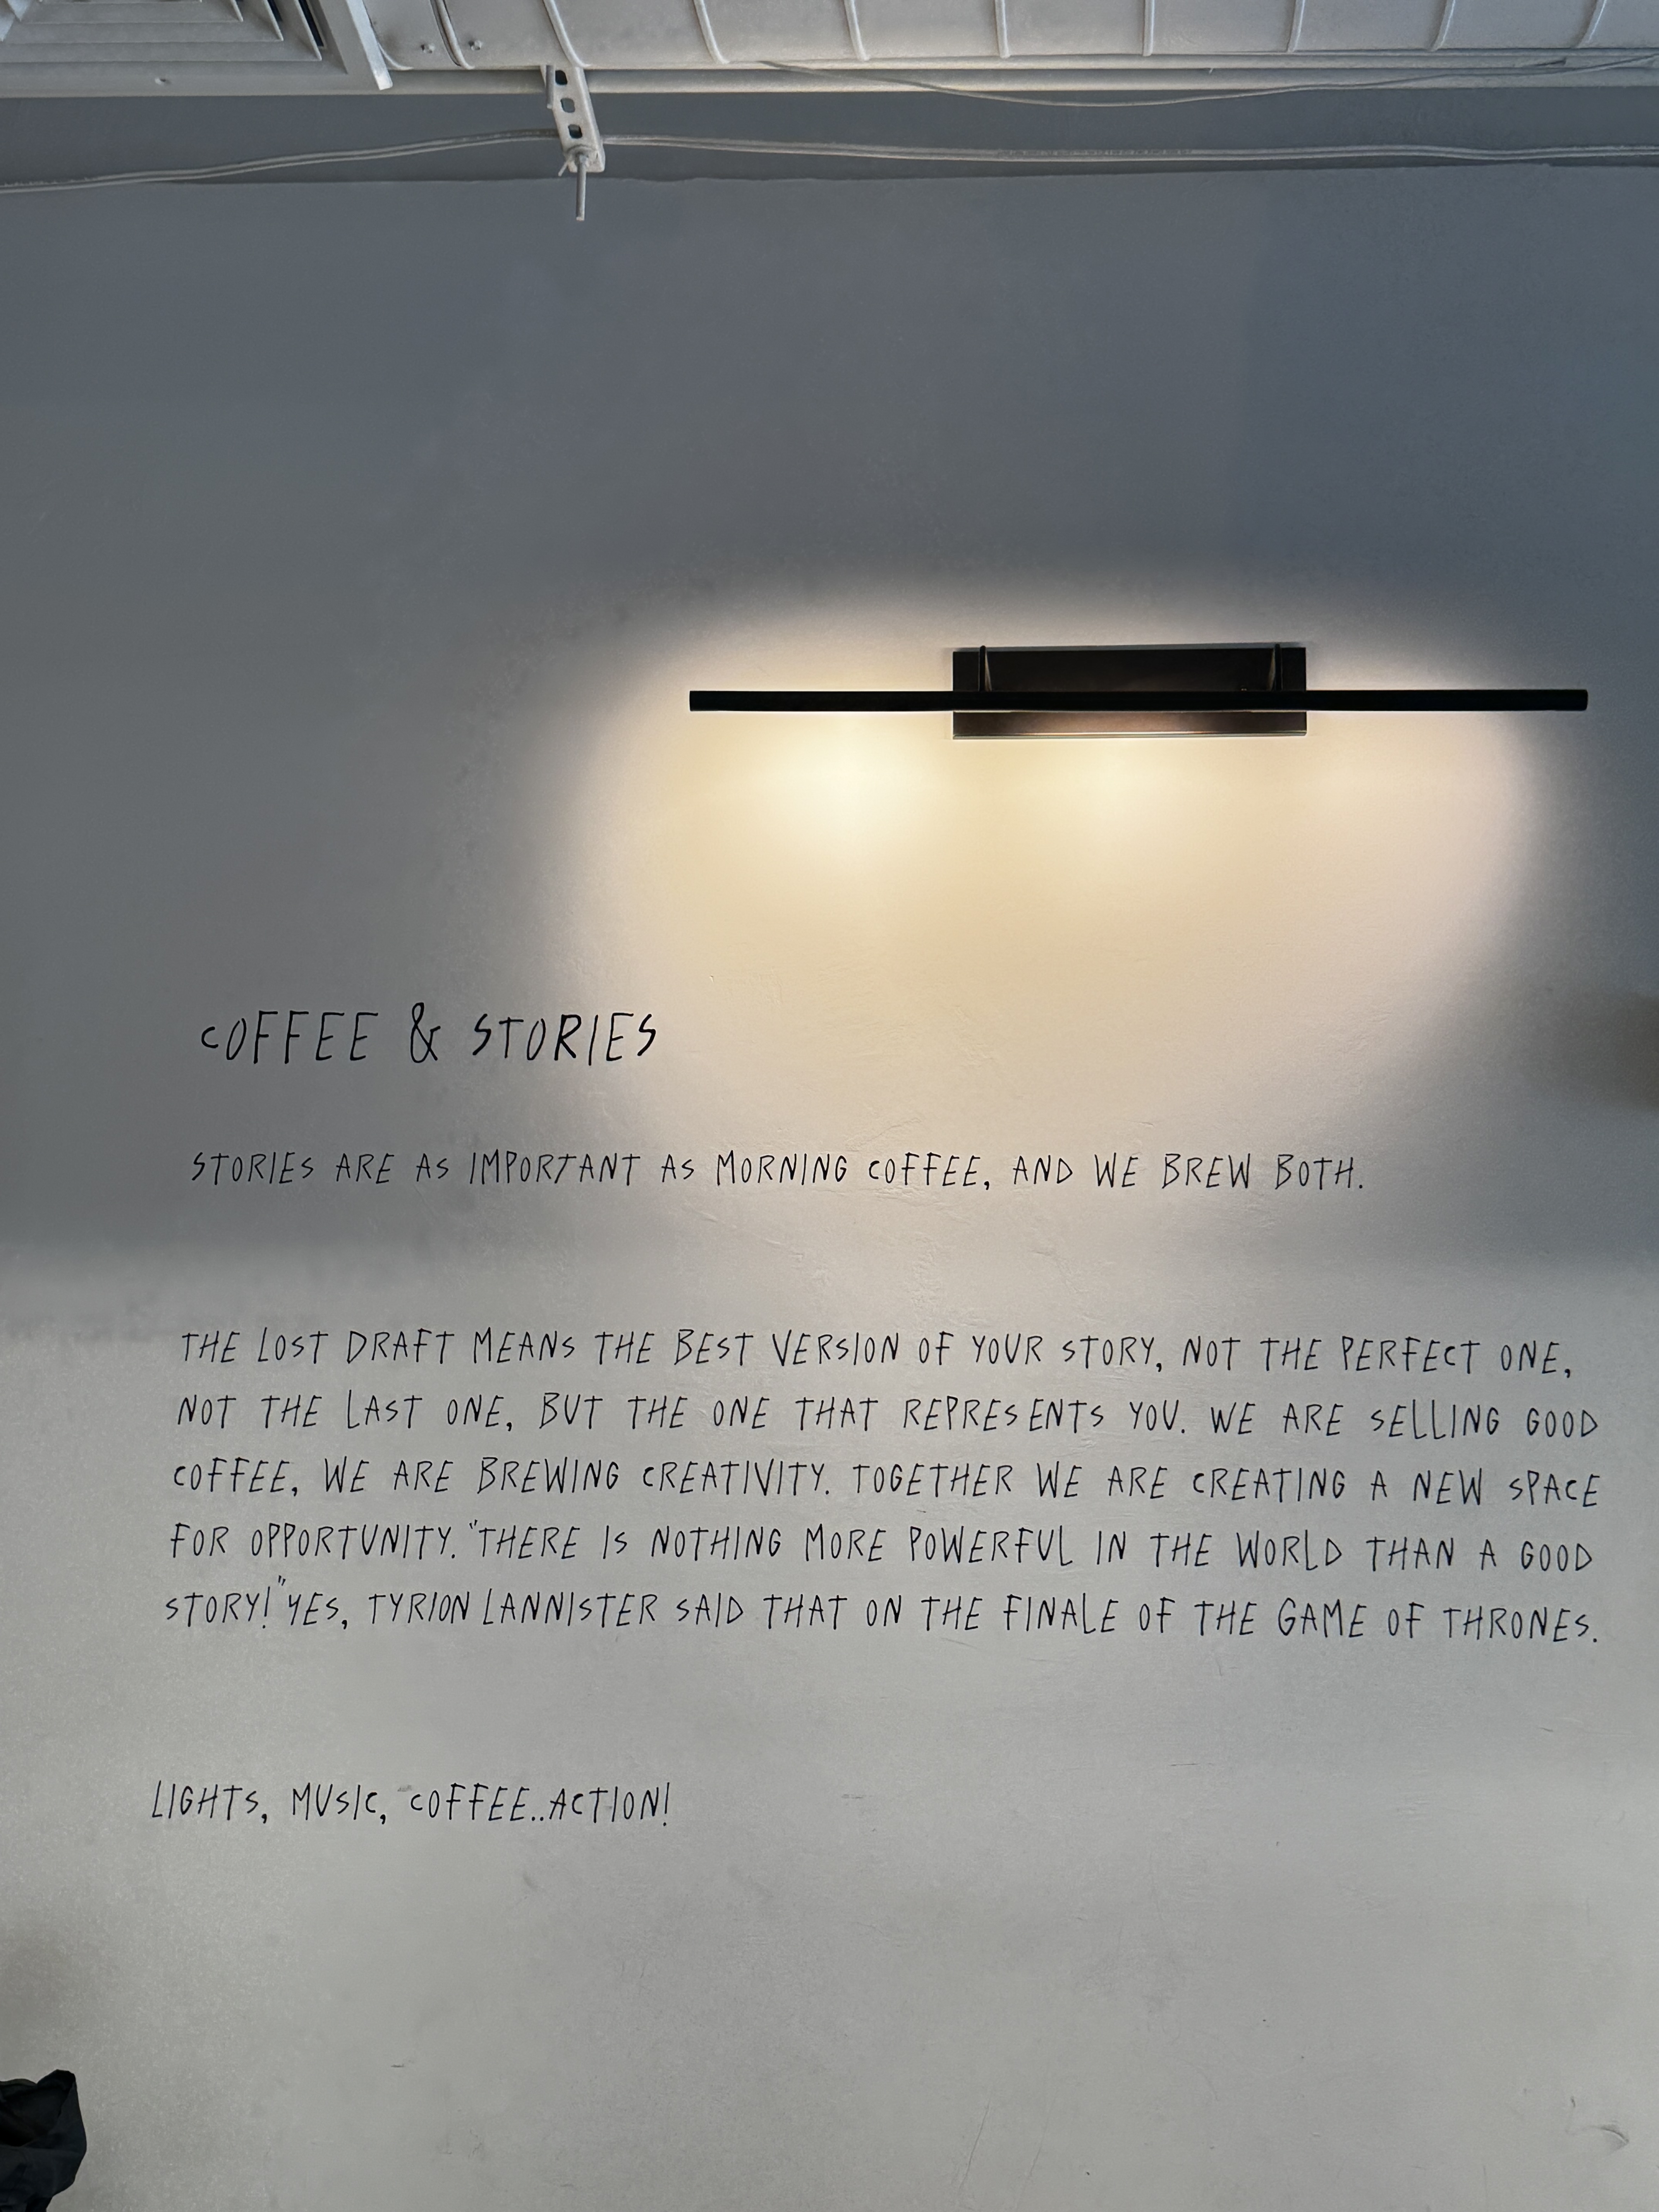 COFFEE & STORIES
STORIES ARE AS IMPORTANT AS MORNING COFFEE, AND WE BREW BOTH.
THE LOST DRAFT MEANS THE BEST VERSION OF YOUR STORY, NOT THE PERFECT ONE,
NOT THE LAST ONE, BUT THE ONE THAT REPRESENTS YOU. WE ARE SELLING GOOD
COFFEE, WE ARE BREWING CREATIVITY. TOGETHER WE ARE CREATING A NEW SPACE
FOR OPPORTUNITY. "THERE IS NOTHING MORE POWERFUL IN THE WORLD THAN A GOOD
STORY!" YES, TYRION LANNISTER SAID THAT ON THE FINALE OF THE GAME OF THRONES.
LIGHTS, MUSIC, COFFEE..ACTION!